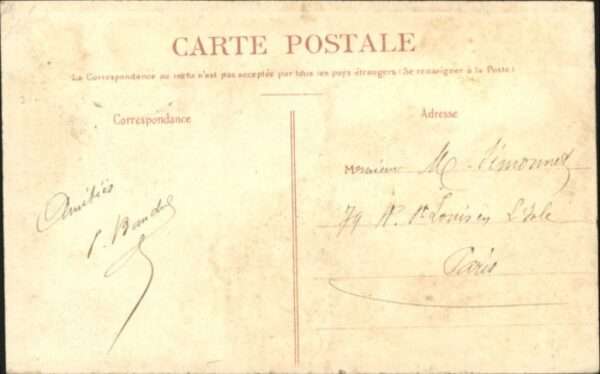 CARTE POSTALE
La Correspondance au recto n'est pas acceptée par tous les pays étrangers (Se renseigner à la Poste)
Correspondance
Adresse
Monsieur M. Simonnet
79 R. St Louis en L'Isle
Paris
Amitiés